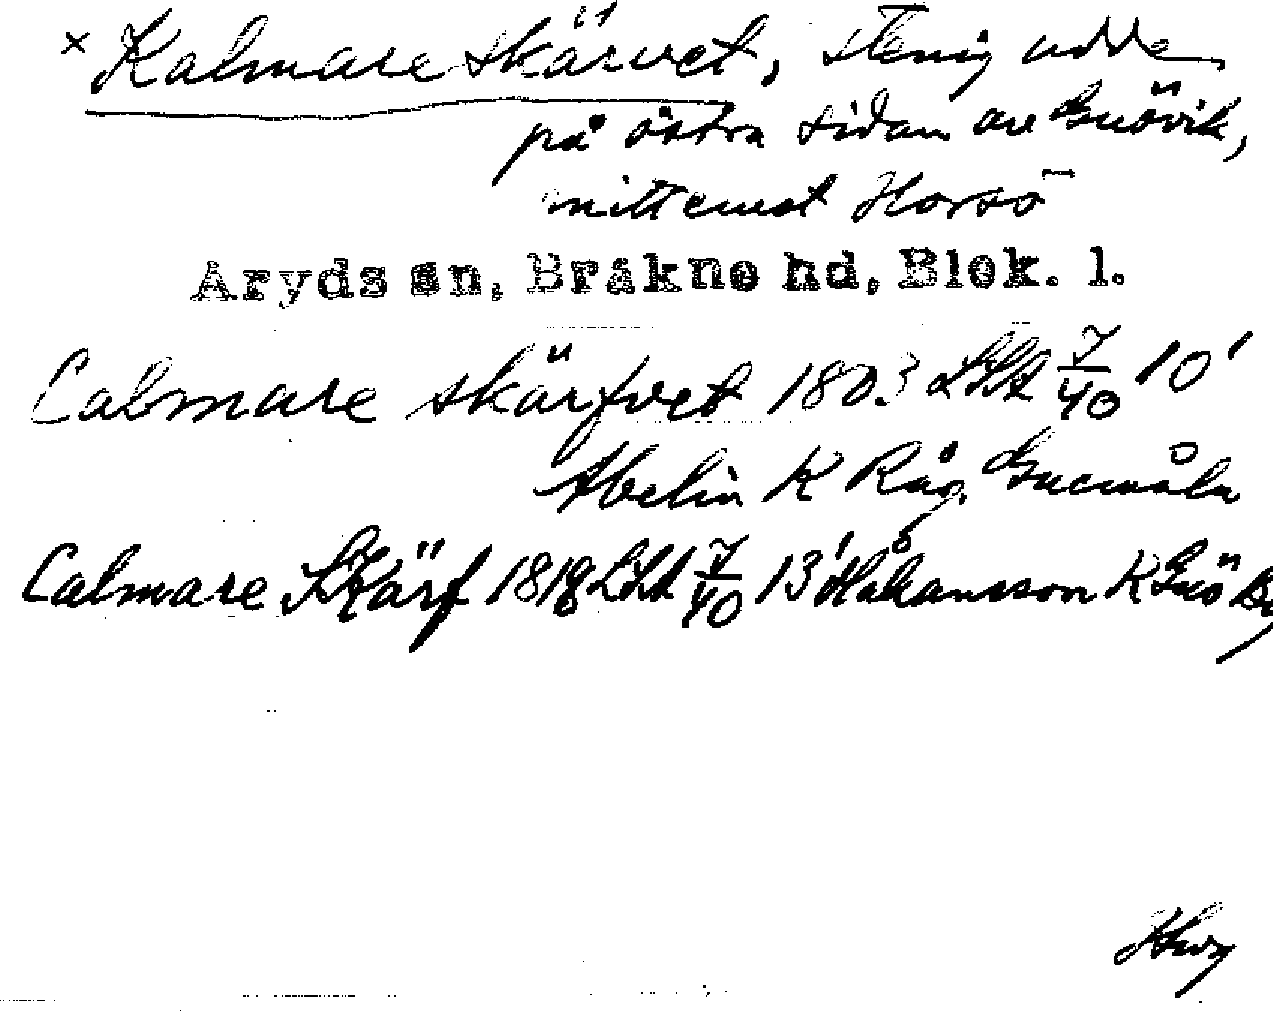 × Kalmare skärvet, stenig udde
på östra sidan av Guövik,
mittemot Horsö
Aryds sn, Bräkne hd, Blek. l.
Calmare skärfvet 1803 LSkt 7/40 10'
Abelin K Råg. Guemåla
Calmare Skärf 1818 LSkt 7/40 13' Håkansson K Guö